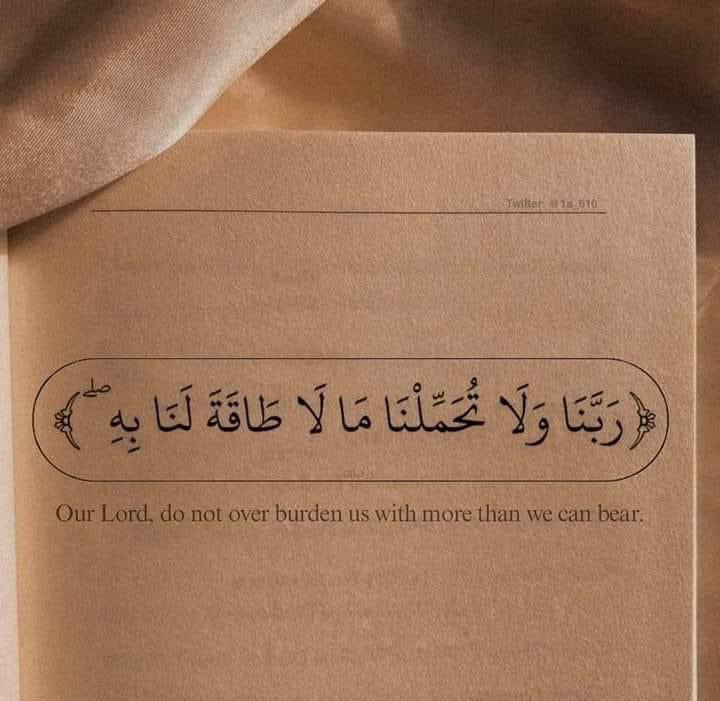 Twitter: @1a_610
﴿رَبَّنَا وَلَا تُحَمِّلْنَا مَا لَا طَاقَةَ لَنَا بِهِ ۖ﴾
Our Lord, do not over burden us with more than we can bear.